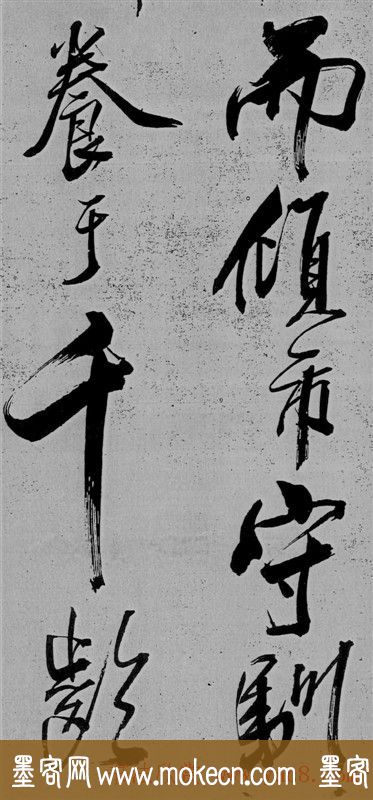 而倾市守驯
養于千齡
墨客网 www.mokecn.com 墨客